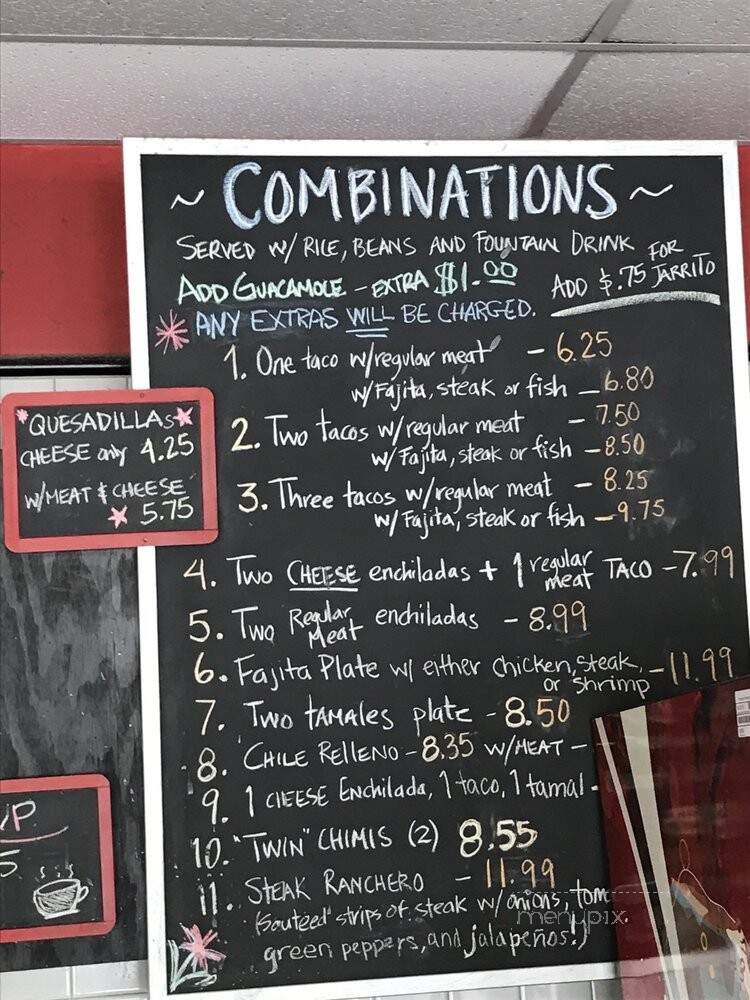 ~ COMBINATIONS ~
SERVED W/ RICE, BEANS AND FOUNTAIN DRINK
ADD GUACAMOLE - EXTRA $1.00
ADD $.75 FOR JARRITO
* ANY EXTRAS WILL BE CHARGED.
1. One taco w/regular meat - 6.25
w/Fajita, steak or fish - 6.80
2. Two tacos w/regular meat - 7.50
w/Fajita, steak or fish - 8.50
3. Three tacos w/regular meat - 8.25
w/Fajita, steak or fish - 9.75
4. Two CHEESE enchiladas + 1 regular meat TACO - 7.99
5. Two Regular Meat enchiladas - 8.99
6. Fajita Plate w/ either chicken, steak, - 11.99
or Shrimp
7. Two TAMALES plate - 8.50
8. CHILE RELLENO - 8.35 W/MEAT -
9. 1 CHEESE Enchilada, 1 taco, 1 tamal -
10. "TWIN" CHIMIS (2) 8.55
11. STEAK RANCHERO - 11.99
(Sauteed strips of steak w/ onions, tom
green peppers, and jalapeños!)
*QUESADILLAS*
CHEESE only 4.25
W/MEAT & CHEESE
* 5.75
menupix